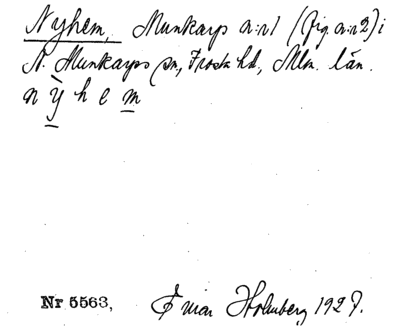 Nyhem, Munkarp a:n1 (fig. a:n2) i
N. Munkarps sn, Frosta hd, Mlm. län.
n ỳ h e m
Nr 5563, Holmberg 1927.